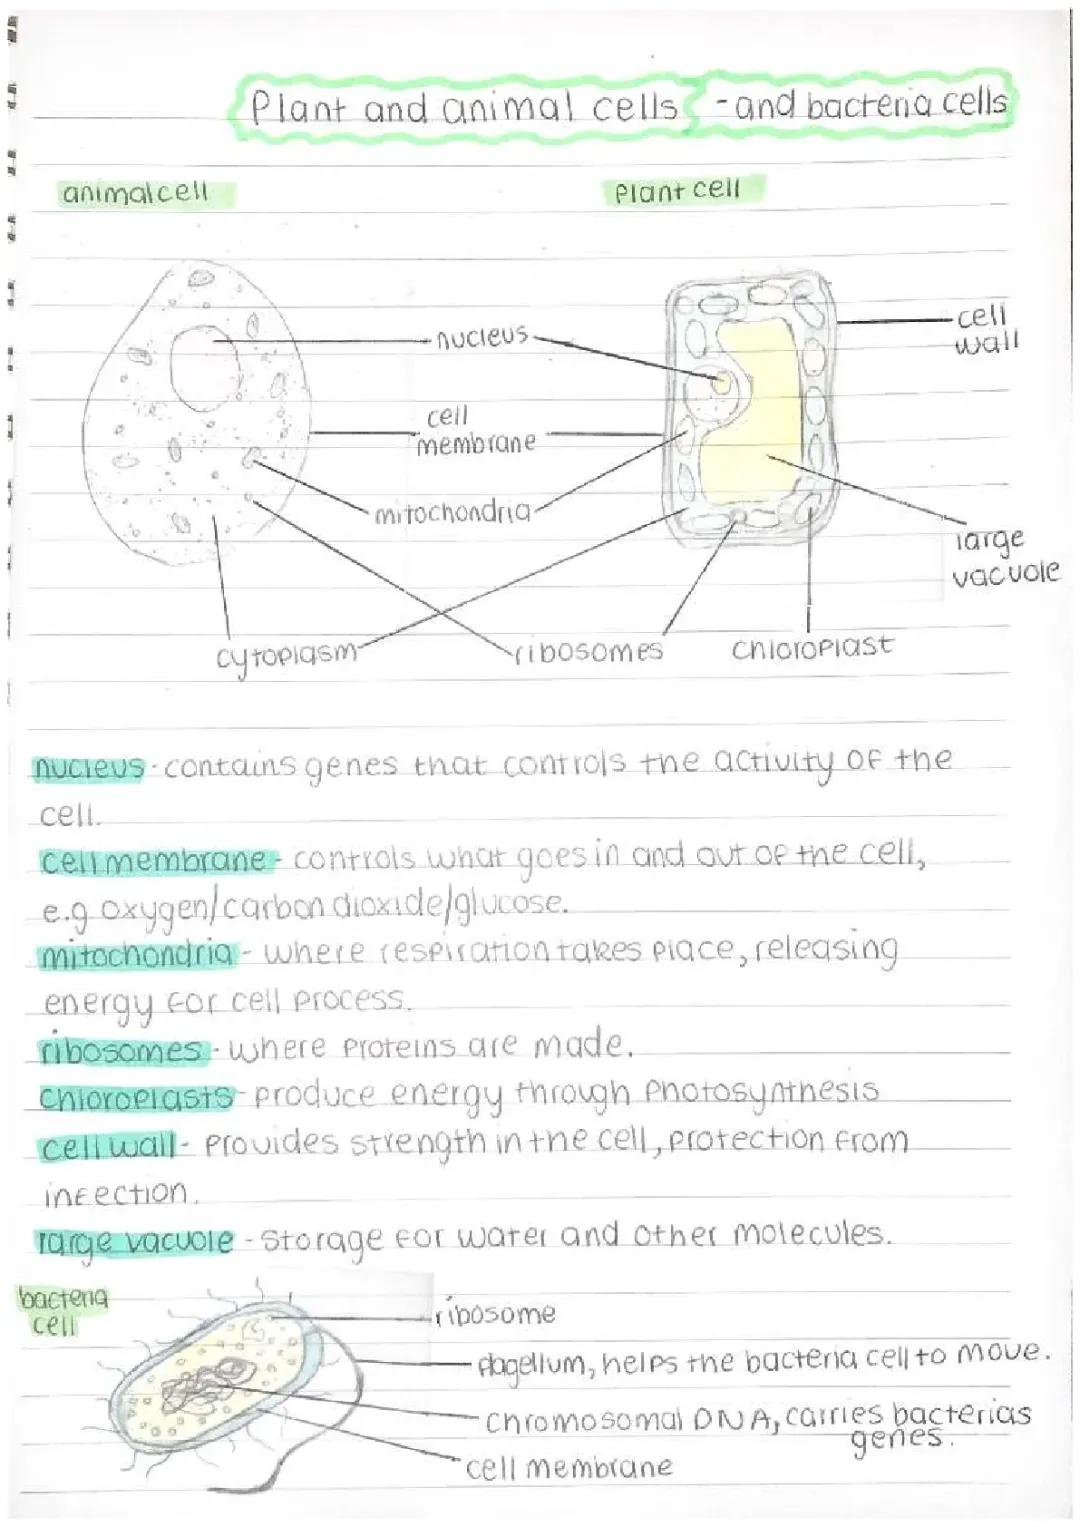 Plant and animal cells - and bacteria cells
animal cell
Plant cell
nucleus
cell
wall
cell
membrane
mitochondria
large
vacuole
cytoplasm
ribosomes
chloroplast
nucleus - contains genes that controls the activity of the
cell.
cell membrane - controls what goes in and out of the cell,
e.g oxygen/carbon dioxide/glucose.
mitochondria - where respiration takes place, releasing
energy for cell process.
ribosomes - where proteins are made.
chloroplasts - produce energy through Photosynthesis
cell wall - provides strength in the cell, protection from
infection.
large vacuole - storage for water and other molecules.
bacteria
cell
ribosome
flagellum, helps the bacteria cell to move.
chromosomal DNA, carries bacterias
genes.
cell membrane